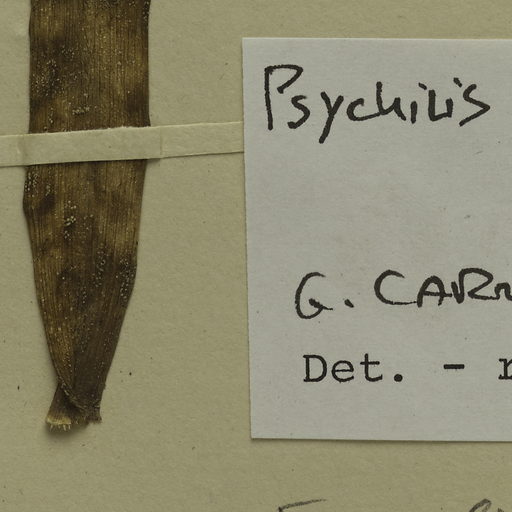 Psychilis
G. CAR
Det. -